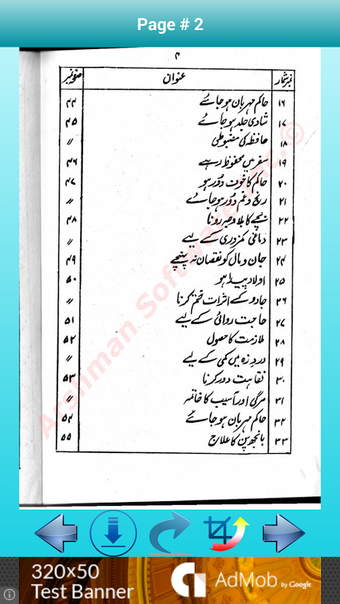 Page # 2
۴
نمبرشمار عنوان صفحہ نمبر
۱۶ حاکم مہربان ہو جائے ۴۴
۱۷ شادی جلد ہو جائے ۴۵
۱۸ حافظہ کی مضبوطی 〃
۱۹ سفر میں محفوظ رہے ۴۶
۲۰ حاکم کا خوف دور ہو ۴۷
۲۱ رنج و غم دور ہو جائے 〃
۲۲ بچے کا بلا وجہ رونا ۴۸
۲۳ دماغی کمزوری کے لیے 〃
۲۴ جان و مال کو نقصان نہ پہنچے ۴۹
۲۵ اولاد پیدا ہو ۵۰
۲۶ جادو کے اثرات ختم کرنا 〃
۲۷ حاجت روائی کے لیے ۵۱
۲۸ ملازمت کا حصول ۵۲
۲۹ درد زہ میں کمی کے لیے 〃
۳۰ نقاہت دور کرنا ۵۳
۳۱ مرگی اور آسیب کا خاتمہ 〃
۳۲ حاکم مہربان ہو جائے ۵۴
۳۳ بانجھ پن کا علاج ۵۵
320x50
Test Banner
AdMob by Google